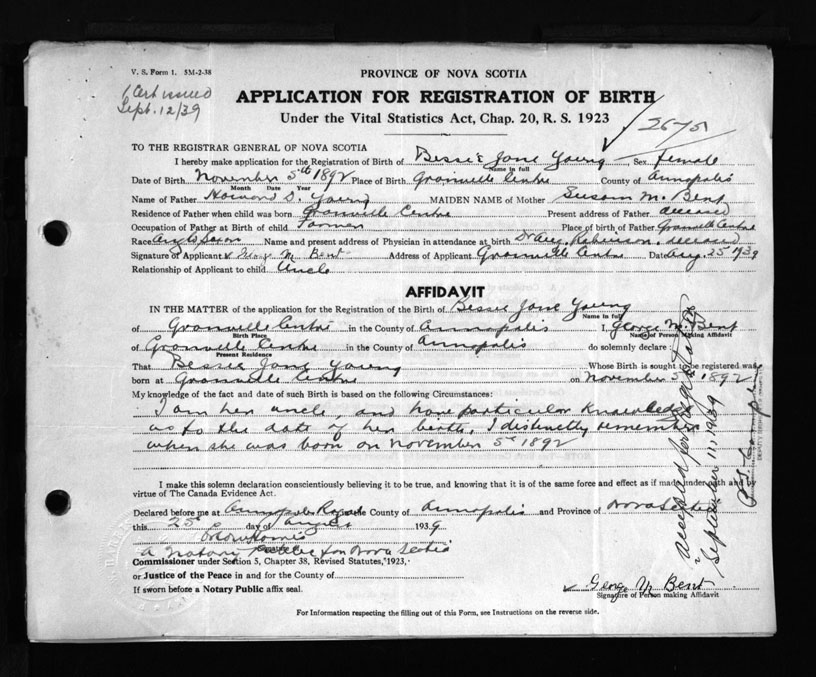 V. S. Form 1. 5M-2-38
PROVINCE OF NOVA SCOTIA
1 Cert issued
Sept. 12/39
APPLICATION FOR REGISTRATION OF BIRTH
Under the Vital Statistics Act, Chap. 20, R. S. 1923
2675
TO THE REGISTRAR GENERAL OF NOVA SCOTIA
I hereby make application for the Registration of Birth of Bessie Jane Young, Sex female
Name in full
Date of Birth November 5th 1892 Place of Birth Granville Centre County of Annapolis
Month Date Year
Name of Father Howard D. Young MAIDEN NAME of Mother Susan M. Bent
Residence of Father when child was born Granville Centre Present address of Father deceased
Occupation of Father at Birth of child Farmer Place of birth of Father Granville Centre
Race Anglo Saxon Name and present address of Physician in attendance at birth Dr Robinson, deceased
Signature of Applicant George M. Bent Address of Applicant Granville Centre Date Aug. 25 1939
Relationship of Applicant to child Uncle
AFFIDAVIT
IN THE MATTER of the application for the Registration of the Birth of Bessie Jane Young
Name in full
of Granville Centre in the County of Annapolis I, George M. Bent
Birth Place Name of Person Making Affidavit
of Granville Centre in the County of Annapolis do solemnly declare:
Present Residence
That Bessie Jane Young Whose Birth is sought to be registered was
born at Granville Centre on November 5 1892
My knowledge of the fact and date of such Birth is based on the following Circumstances:
I am her uncle, and have particular knowledge
as to the date of her birth. I distinctly remember
when she was born on November 5th 1892
I make this solemn declaration conscientiously believing it to be true, and knowing that it is of the same force and effect as if made under oath and by
virtue of The Canada Evidence Act.
Declared before me at Annapolis Royal the County of Annapolis and Province of Nova Scotia
this 25th day of August 1939
A Notary Public for Nova Scotia
Commissioner under Section 5, Chapter 38, Revised Statutes, 1923,
or Justice of the Peace in and for the County of
If sworn before a Notary Public affix seal.
George M. Bent
Signature of Person making Affidavit
For Information respecting the filling out of this Form, see Instructions on the reverse side.
Accepted for registration
September 11, 1939